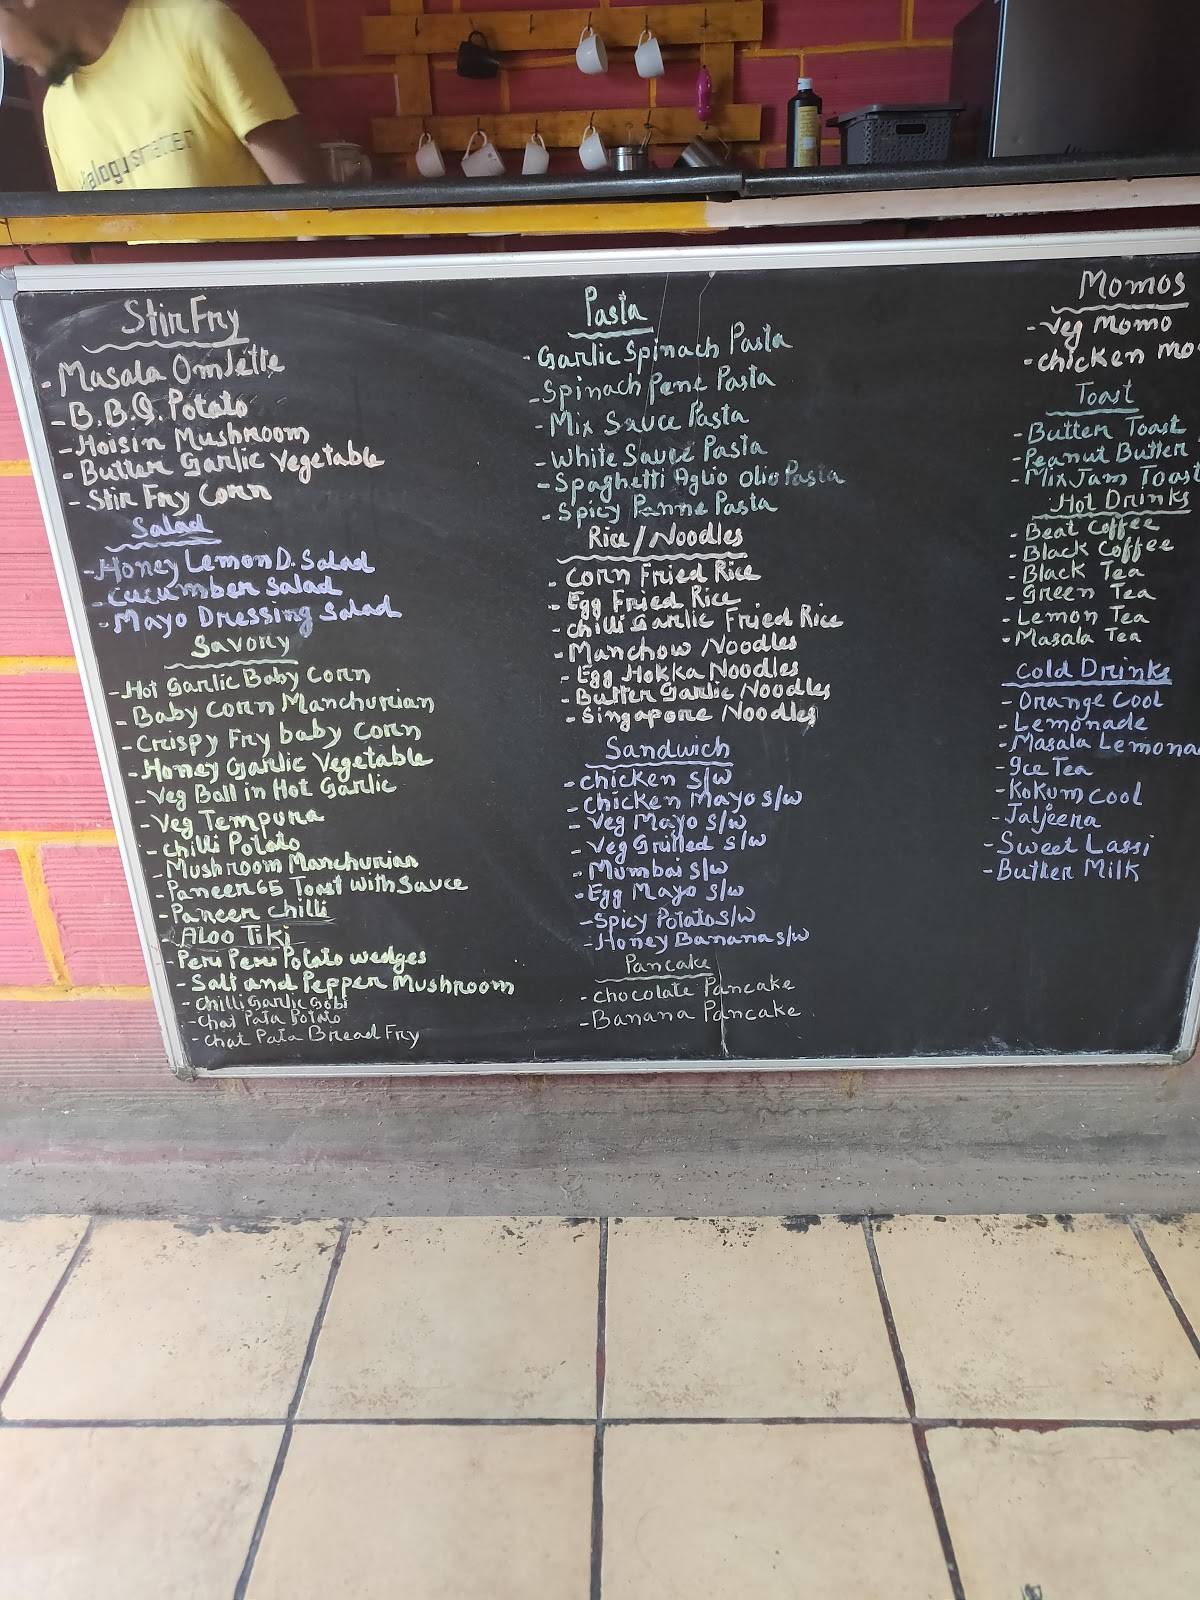 Stir Fry
- Masala Omlette
- B.B.Q. Potato
- Hoisin Mushroom
- Butter Garlic Vegetable
- Stir Fry Corn
Salad
- Honey Lemon D. Salad
- Cucumber Salad
- Mayo Dressing Salad
Savory
- Hot Garlic Baby Corn
- Baby Corn Manchurian
- Crispy Fry baby Corn
- Honey Garlic Vegetable
- Veg Ball in Hot Garlic
- Veg Tempura
- chilli Potato
- Mushroom Manchurian
- Paneer 65 Toast with Sauce
- Paneer chilli
- ALOO TiKi
- Peri Peri Potato wedges
- Salt and Pepper Mushroom
- chilli Garlic Gobi
- Chat Pata Potato
- Chat Pata Bread Fry
Pasta
- Garlic Spinach Pasta
- Spinach Pene Pasta
- Mix Sauce Pasta
- White Sauce Pasta
- Spaghetti Aglio Olio Pasta
- Spicy Penne Pasta
Rice / Noodles
- Corn Fried Rice
- Egg Fried Rice
- chilli Garlic Fried Rice
- Manchow Noodles
- Egg Hokka Noodles
- Butter Garlic Noodles
- Singapore Noodles
Sandwich
- chicken s/w
- chicken Mayo s/w
- Veg Mayo s/w
- Veg Grilled s/w
- Mumbai s/w
- Egg Mayo s/w
- Spicy Potato s/w
- Honey Banana s/w
Pancake
- chocolate Pancake
- Banana Pancake
Momos
- Veg Momo
- chicken mo
Toast
- Butter Toast
- Peanut Butter
- Mix Jam Toast
Hot Drinks
- Beat Coffee
- Black Coffee
- Black Tea
- Green Tea
- Lemon Tea
- Masala Tea
Cold Drinks
- Orange Cool
- Lemonade
- Masala Lemona
- Ice Tea
- Kokum Cool
- Jaljeera
- Sweet Lassi
- Butter Milk